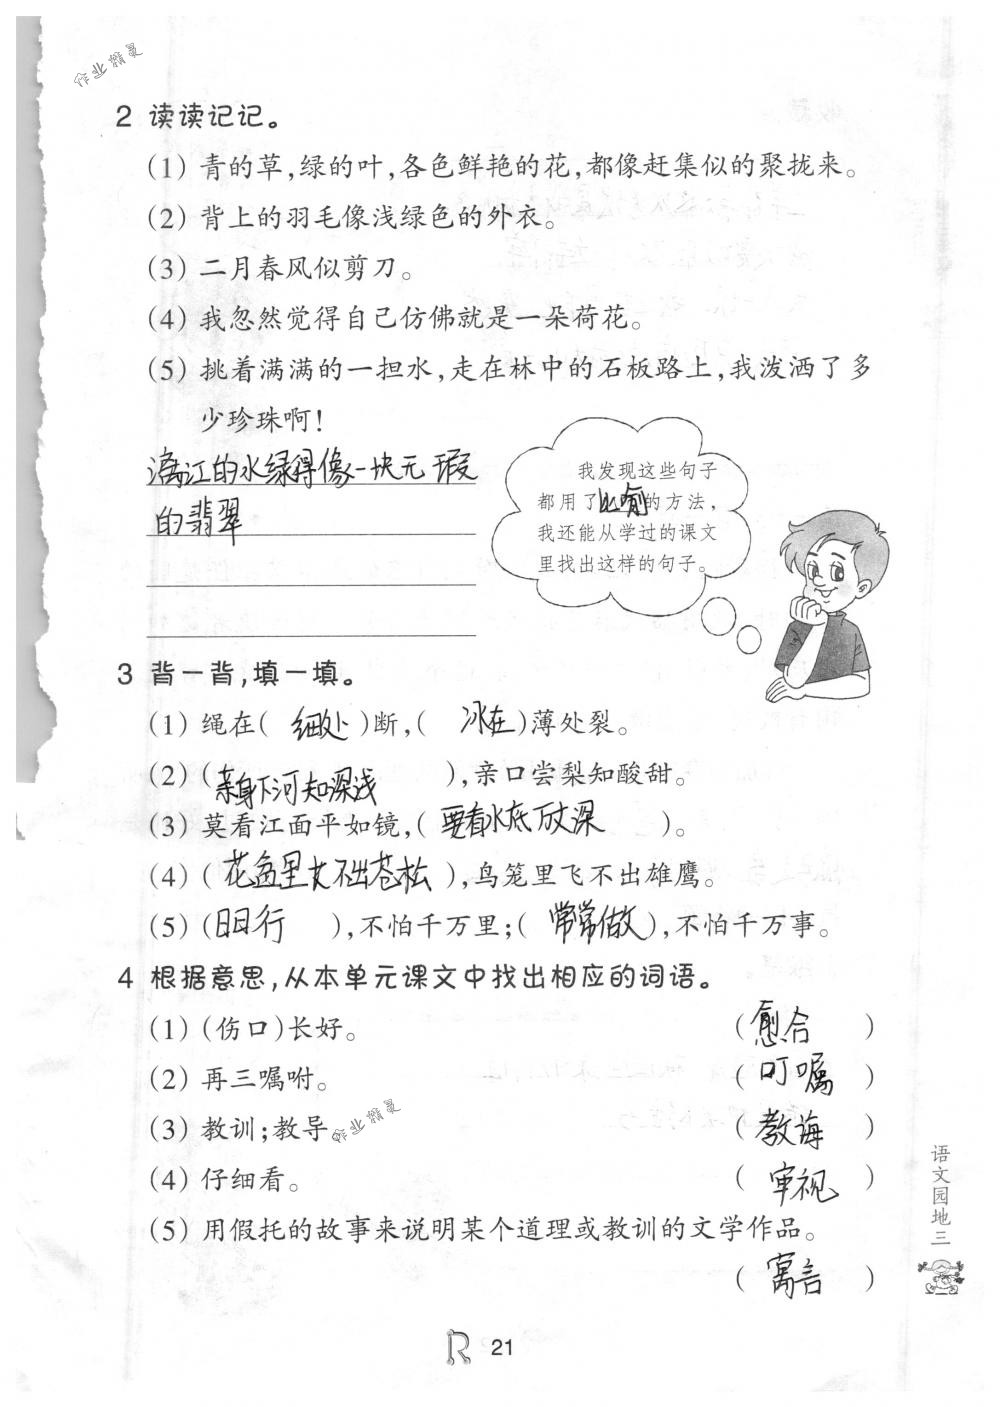 作业精灵
2 读读记记。
(1) 青的草,绿的叶,各色鲜艳的花,都像赶集似的聚拢来。
(2) 背上的羽毛像浅绿色的外衣。
(3) 二月春风似剪刀。
(4) 我忽然觉得自己仿佛就是一朵荷花。
(5) 挑着满满的一担水,走在林中的石板路上,我泼洒了多
少珍珠啊!
漓江的水绿得像一块无瑕
的翡翠
我发现这些句子
都用了比喻的方法,
我还能从学过的课文
里找出这样的句子。
3 背一背,填一填。
(1) 绳在( 细处 )断,( 冰在 )薄处裂。
(2) ( 亲身下河知深浅 ),亲口尝梨知酸甜。
(3) 莫看江面平如镜,( 要看水底万丈深 )。
(4) ( 花盆里长不出苍松 ),鸟笼里飞不出雄鹰。
(5) ( 日日行 ),不怕千万里;( 常常做 ),不怕千万事。
4 根据意思,从本单元课文中找出相应的词语。
(1) (伤口)长好。 ( 愈合 )
(2) 再三嘱咐。 ( 叮嘱 )
(3) 教训;教导。 ( 教诲 )
作业精灵
(4) 仔细看。 ( 审视 )
(5) 用假托的故事来说明某个道理或教训的文学作品。
( 寓言 )
语文园地三
R 21